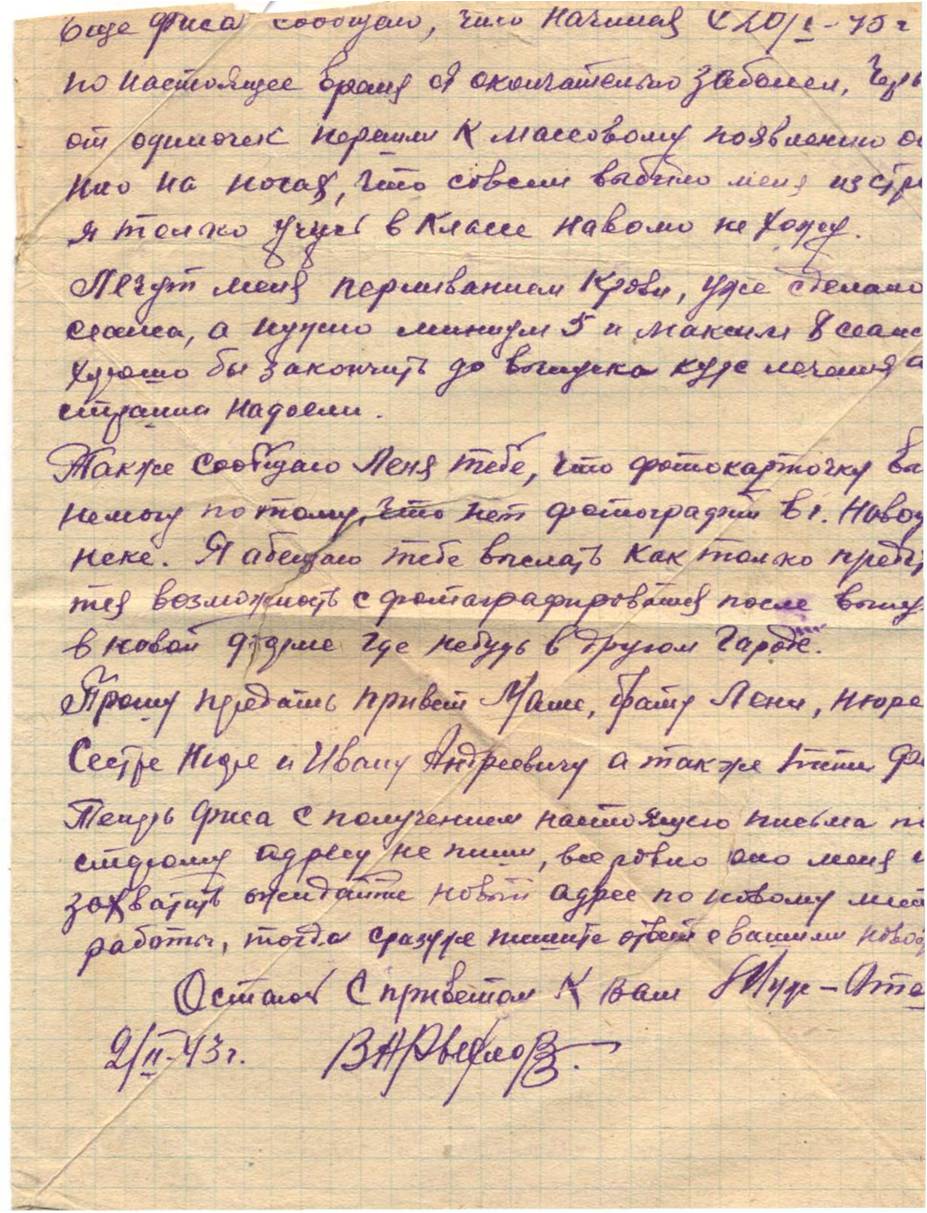 Еще Фиса сообщаю, что начиная с 20/I-43 г
по настоящее время я окончательно заболел, Чирь
от одиночек перешли к массовому появлению ос
на ногах, что совсем выбило меня из стр
я только учусь в классе навомо не хожу.
Лечут меня переливанием крови, уже сделано
сеанса, а нужно минимум 5 и максим 8 сеанс
хорошо бы закончить до выпуска курс лечения а
страшна надоели.
Также сообщаю Леня тебе, что фотокарточку вы
немогу потому, что нет фотографий в г. Новоу
неке. Я абещаю тебе выслать как только предст
тся возможность сфотаграфироватся после выпу
в новой форме где небудь в другом Гароде.
Прошу предать привет Маме, брату Лени, Нюре
Сестре Нюре и Ивану Андреевичу а также тети Фе
Теперь Фиса с получением настоящего письма по
старому адресу не пиши, все ровно оно меня н
захватить ожидайте новый адрес по новому мест
работы, тогда сразуже пишите ответ с вашими новос
Остаюсь С приветом к вам Муж - Оте
2/II-43 г.